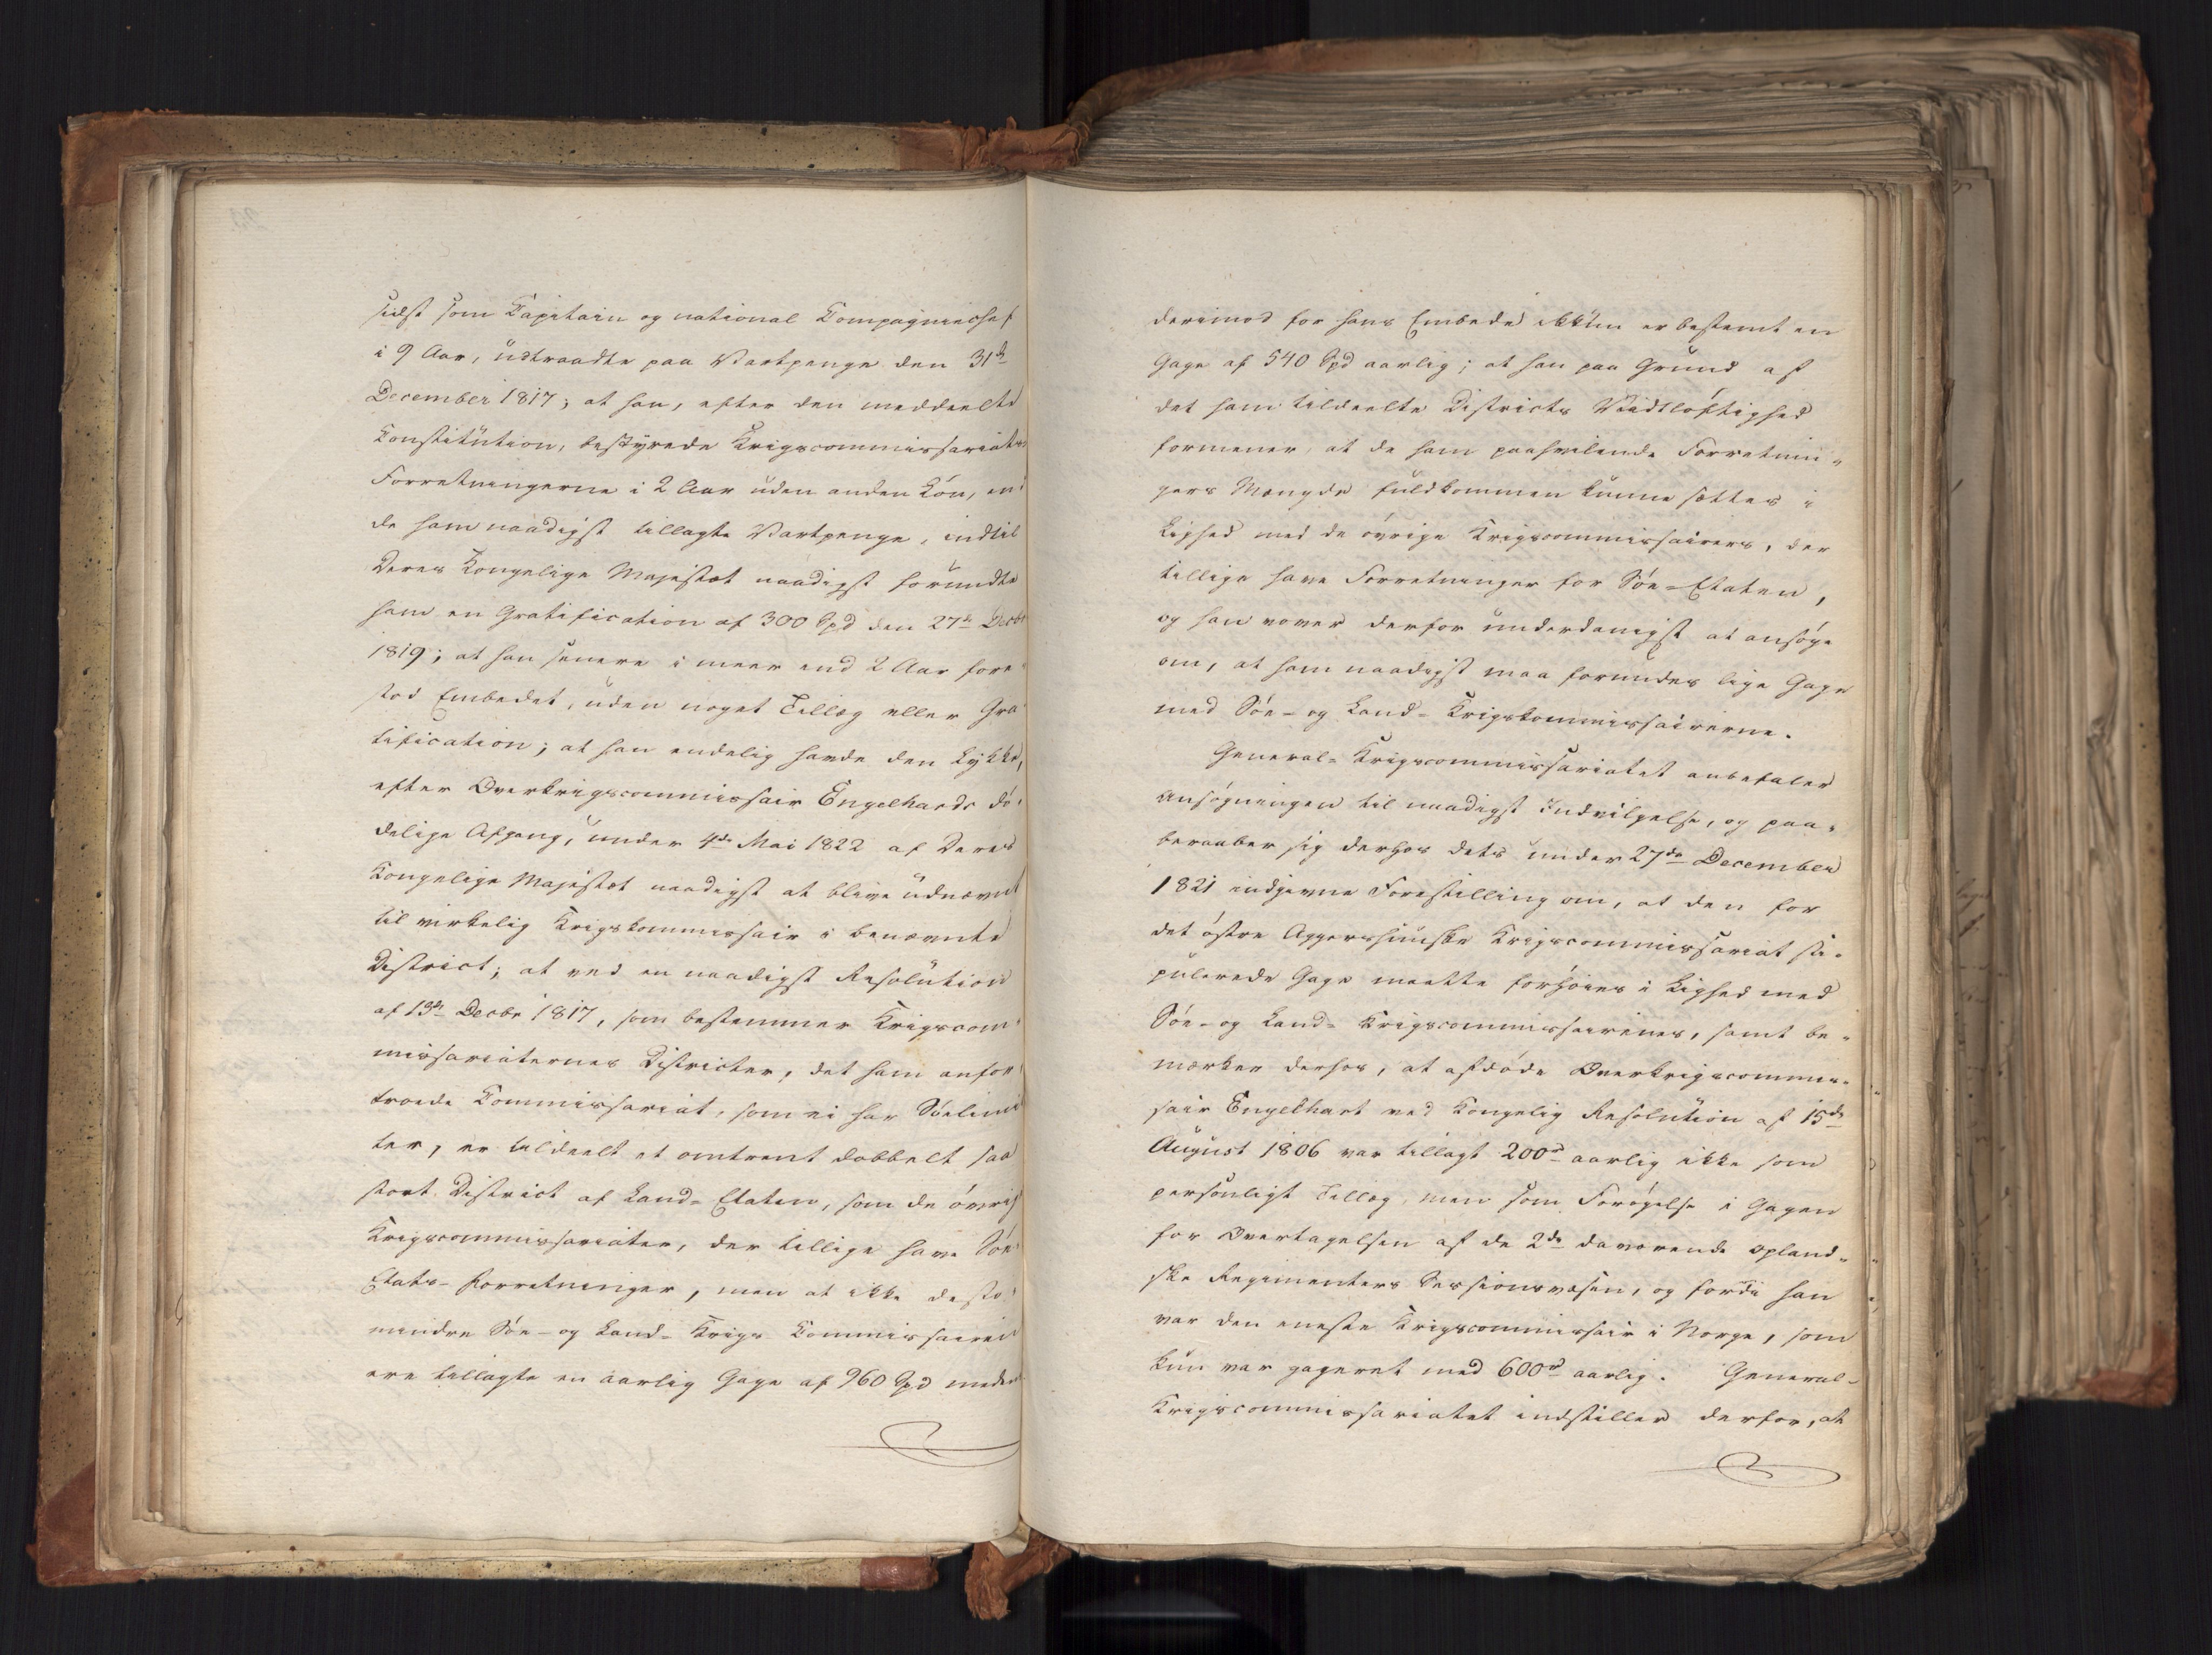 sidst som Capitain og national Compagniechef
i 9 Aar, üdtraadte paa Vartpenge den 31te
December 1817; at han, efter den meddeelte
Constitütion, bestÿrede Krigscommissariats
Forretningerne i 2 Aar üden anden Løn, end
de ham naadigst tillagte Vartpenge, indtil
Deres Kongelige Majestæt naadigst forundte
ham en Gratification af 300 Spd den 27de Decbr
1819; at han senere i meer end 2 Aar fore-
stod Embedet, üden noget Tillæg eller Gra-
tification; at han endelig havde den Lykke,
efter Overkrigscommissair Engelhardts dø-
delige Afgang, ünder 4de Mai 1822 af Deres
Kongelige Majestæt naadigst at blive üdnævnt
til virkelig Krigskommissair i benævnte
District; at ved en naadigst Resolütion
af 13de Decbr 1817, som bestemmer Krigscom-
missariaternes Districter, det ham anfor-
troede Commissariat, som ei har Sølimi-
ter, er tildeelt et omtrent dobbelt saa
stort District af Land-Etaten, som de øvrige
Krigscommissariater, der tillige have Søe-
Etats-Forretninger, men at ikke desto-
mindre Søe- og Land-Krigs Commissairer
ere tillagte en aarlig Gage af 960 Spd medens
derimod for hans Embede ikkün er bestemt en
Gage af 540 Spd aarlig; at han paa Gründ af
det ham tildeelte Districts Viidtløftighed
formener, at de ham paahvilende Forretnin-
gers Mængde füldkommen künne sættes i
Lighed med de øvrige Krigscommissairers, der
tillige have Forretninger for Søe-Etaten,
og han vover derfor ünderdanigst at ansøge
om, at ham naadigst maa forundes lige Gage
med Søe- og Land-Krigskommissairerne.
General-Krigscommissariatet anbefaler
Ansøgningen til naadigst Indvilgelse, og paa-
beraaber sig derhos dets ünder 27de December
1821 indgivne Forestilling om, at den for
det østre Aggershüüske Krigscommissariat sti-
pülerede Gage maatte forhøies i Lighed med
Søe- og Land-Krigscommissairernes, samt be-
mærker derhos, at afdøde Overkrigscommis-
sair Engelhart ved Kongelig Resolütion af 15de
Aügust 1806 var tillagt 200rd aarlig ikke som
personligt Tillæg, men som Forøgelse i Gagen
for Overtagelsen af de 2de daværende opland-
ske Regimenters Sessionsvæsen, og fordi han
var den eneste Krigscommissair i Norge, som
kün var gageret med 600rd aarlig. General-
Krigscommissariatet indstiller derfor, at